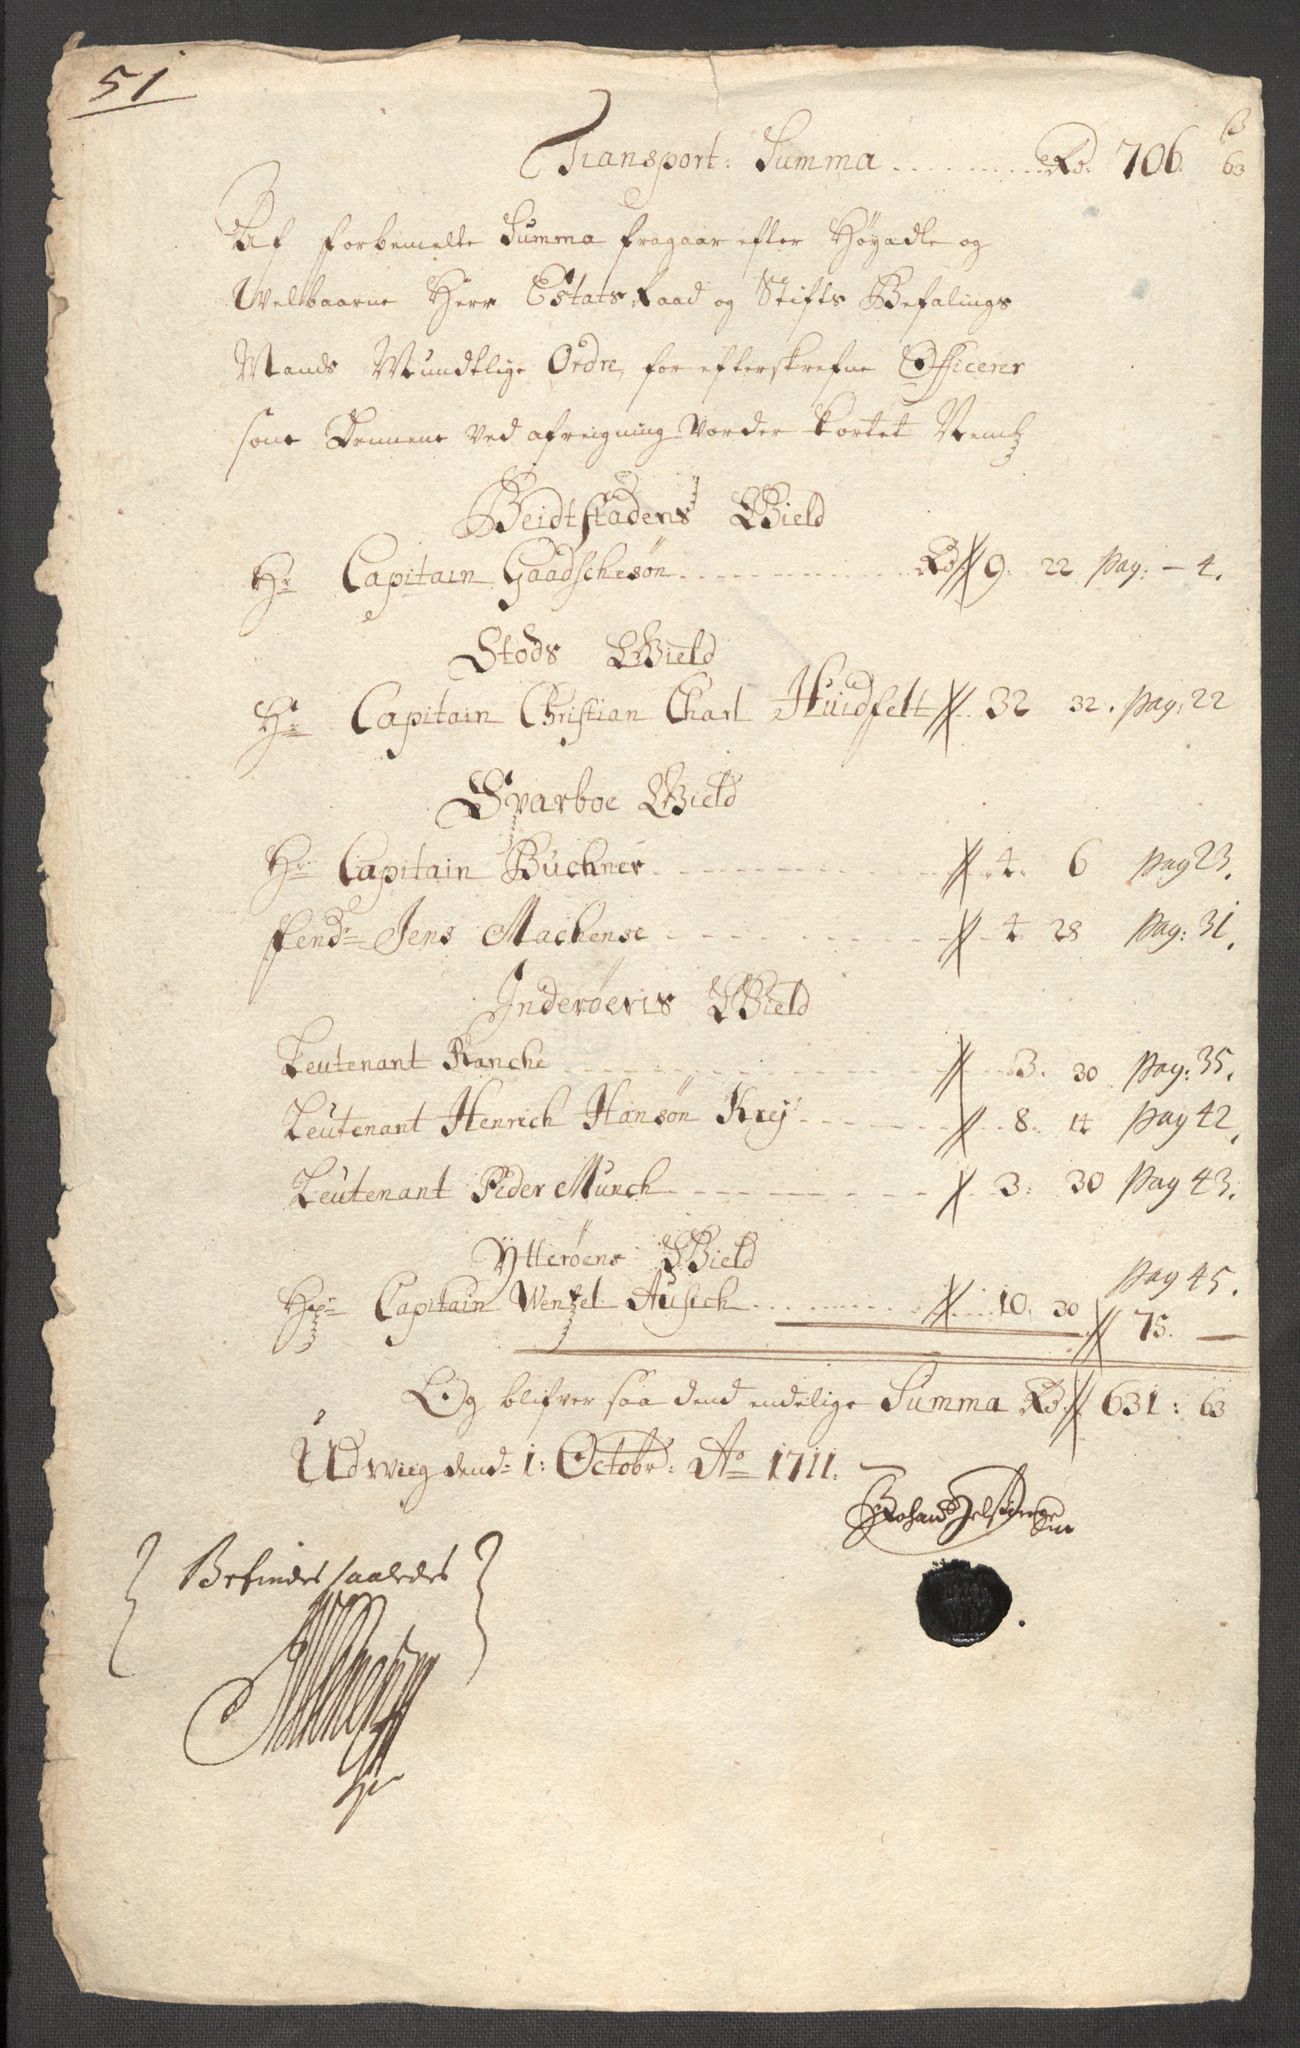 51
Transport: Summa ........ Rd. 706. 63
ß
Af forbemelte Summa fragaar efter Høyadle og
Welbaarne Herr Etats Raad og Stifts Befalings
Mands Mundtlige Ordre, for efterskrefne Officerer
som Dennem ved afreigning vorder kortet Neml
Beidtstadens Gield
Hr Capitain Gaadschesøn ........ Rd 9. 22 pag: - 4.
Stods Gield
Hr Capitain Christian Charl Huidfelt 32 32. pag: 22
Sparboe Gield
Hr Capitain Buchner ........ 4. 6 pag 23.
ffend: Jens Machense ........ 4. 28 pag: 31.
Inderøens Gield
Leutenant Ranche ........ 3. 30 pag: 35.
Leutenant Henrich Hansøn Krej ........ 8. 14 pag 42.
Leutenant Peder Munch ........ 3: 30 pag 43.
Ytterøens Gield
Hr Capitain Wentzel Ausich ........ 10. 30 pag 45.
75. —
Og blifver saa dend endelige Summa Rd. 631: 63
Udwiig dend: 1: Octobr: Ao 1711.
Befindes saaledes